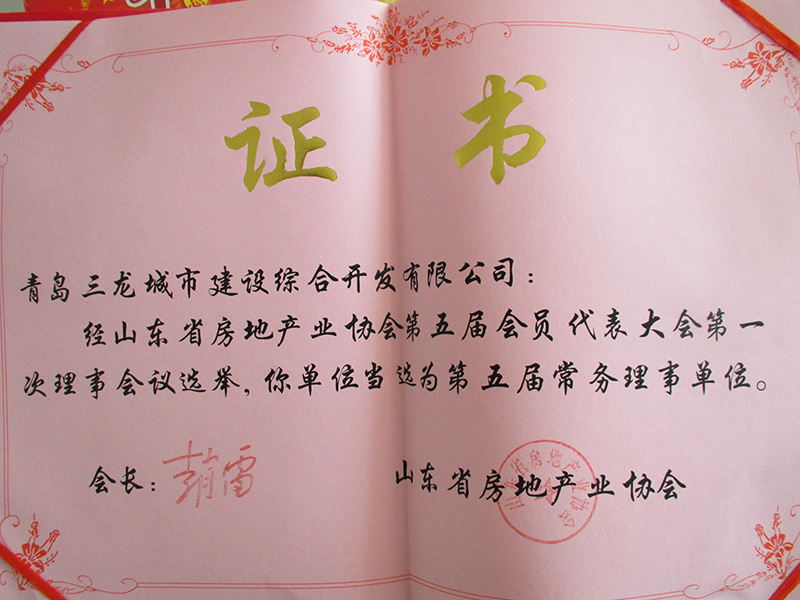 证书
青岛三龙城市建设综合开发有限公司：
经山东省房地产业协会第五届会员代表大会第一
次理事会议选举，你单位当选为第五届常务理事单位。
会长：
山东省房地产业协会
山东省房地产业协会